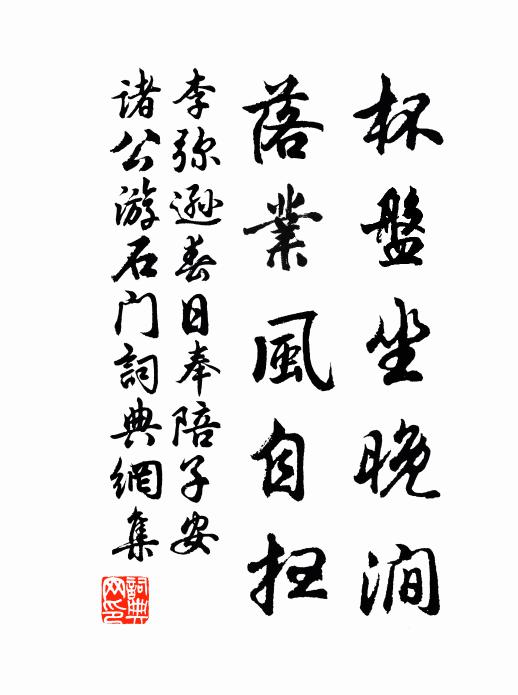 杯盤坐晚澗
落業風自
李弥遜春日奉陪子安
諸公游石門詞典網集
詞典網印